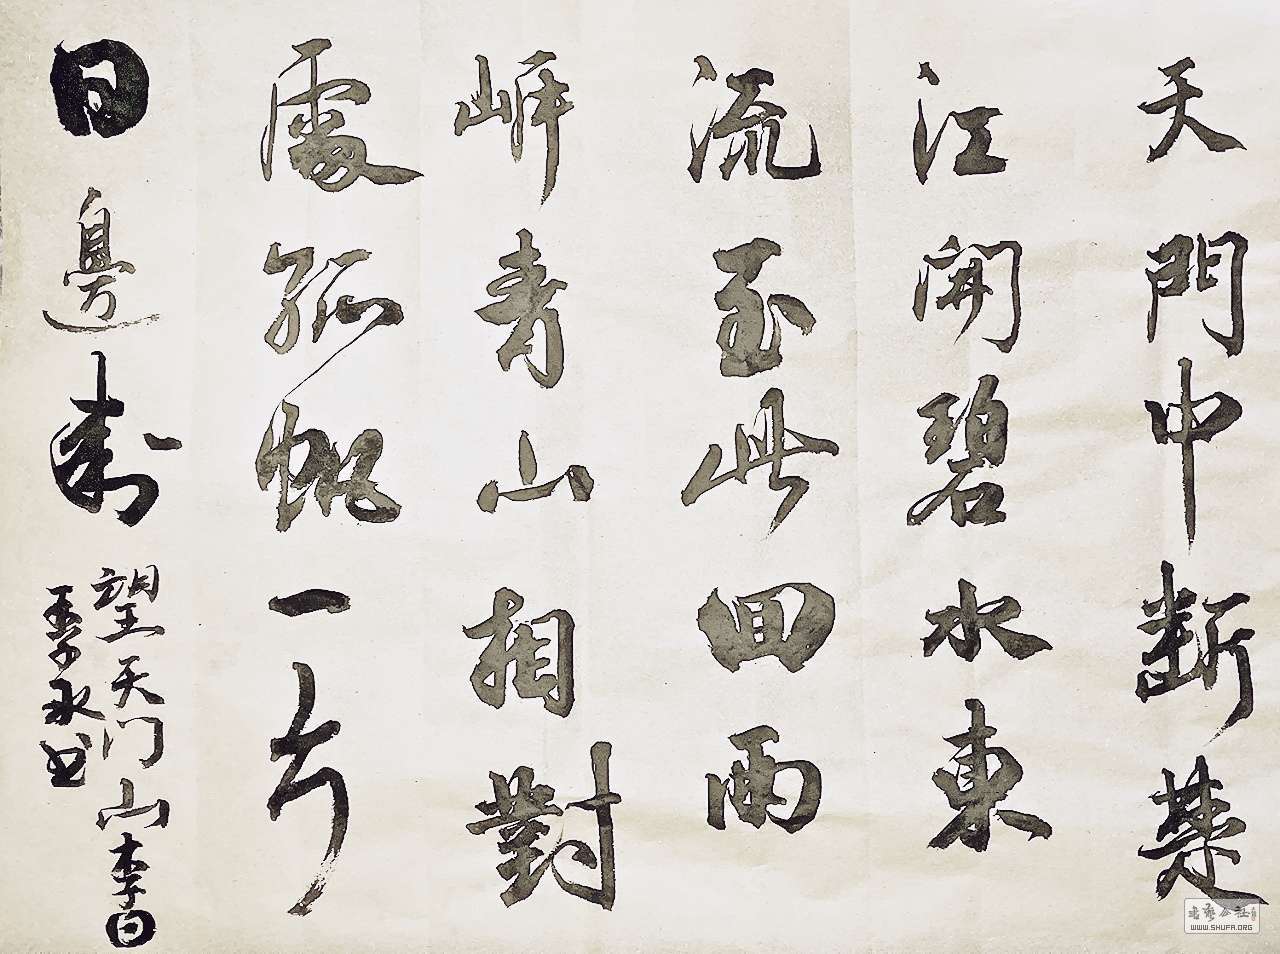 天門中斷楚
江開碧水東
流至此回兩
岍青山相對
處孤帆一片
日邊来
望天门山李白
永书
书艺公社
WWW.SHUFA.ORG